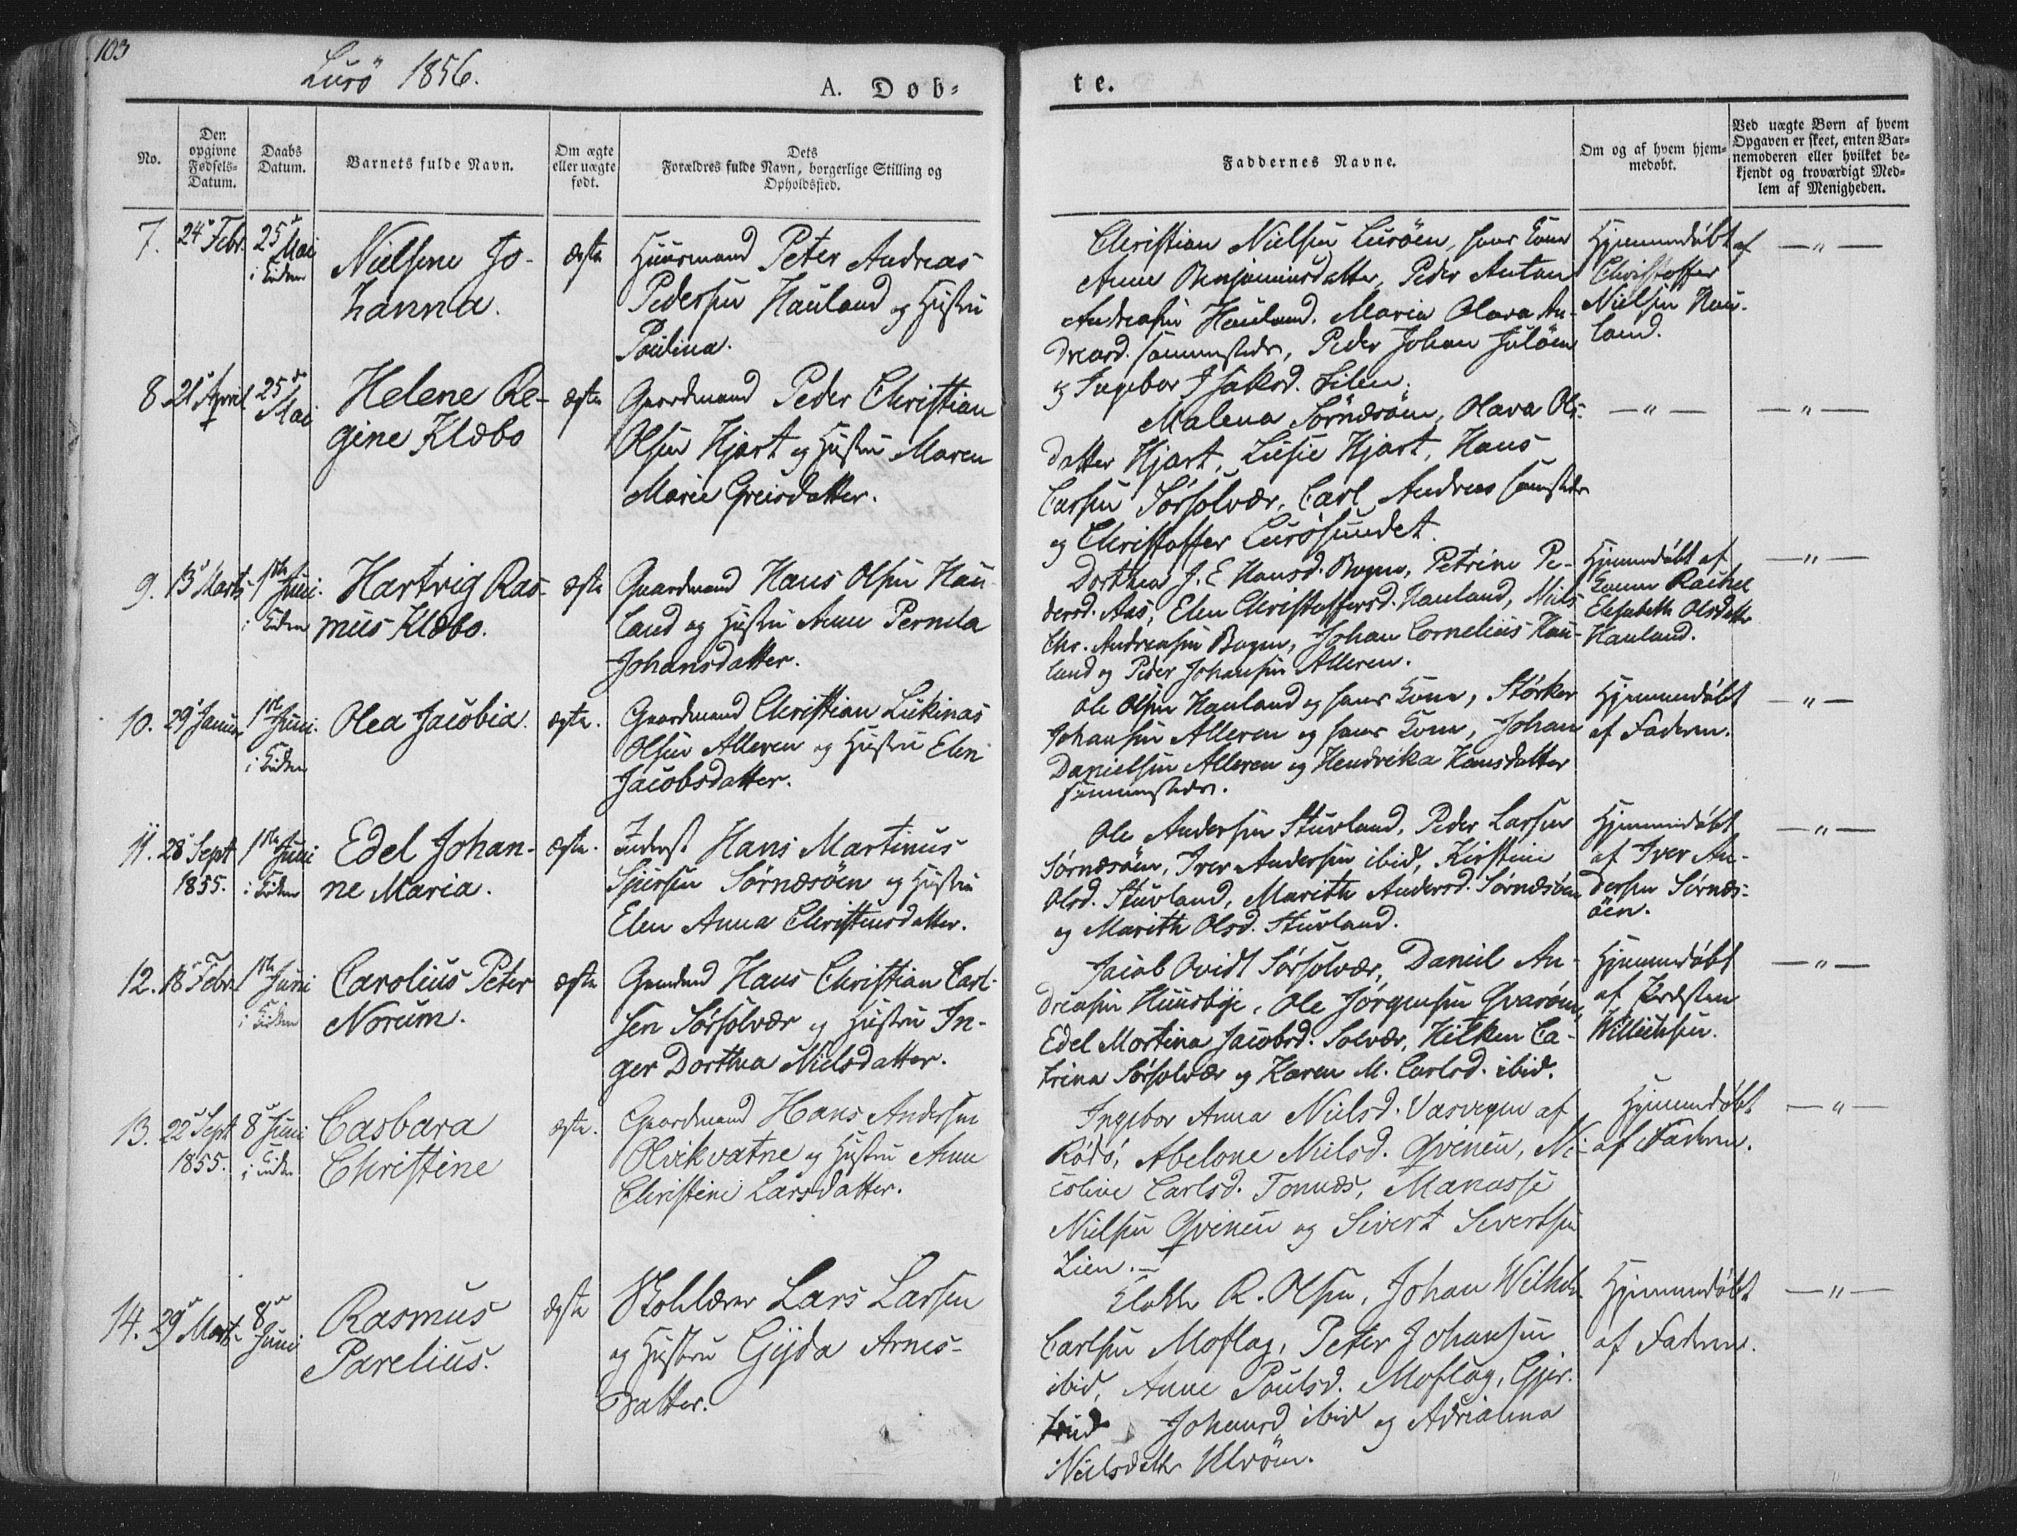 103
Lurö 1856.
A. Døb-
te.
No.
Den opgivne Fødsels-Datum.
Daabs Datum.
Barnets fulde Navn.
Om ægte eller uægte født.
Dets Forældres fulde Navn, borgerlige Stilling og Opholdssted.
Faddernes Navne.
Om og af hvem hjem-medøbt.
Ved uægte Børn af hvem Opgaven er skeet, enten Bar-nemoderen eller hvilket be-kjendt og troværdigt Med-lem af Menigheden.
7. 24 Febr. 25 Mai i Kirken
Nielsine Jo-
hanna.
ægte
Huusmand Peter Andreas
Pedersen Hauland og Hustru
Paulina.
Christian Nielsen Luröen, hans Kone
Anne Benjaminsdatter, Peder Antan
Andreasen Hauland, Maria Olava An-
dreasd. sammesteds, Peder Johan
og Ingebor Isaksd. Silen.
Hjemmedöbt af
Christoffer
Nielsen Hau-
land.
— " —
8 21 April 25 Mai
Helene Re-
gine Klæbo
ægte
Gaardmand Peder Christian
Olsen Hjart og Hustru Maren
Marie Greisdatter.
Malena Sörnæsöen, Olava Ols-
datter Hjart, Lusie Hjart, Hans
Carsen Sörsolvær, Carl Andreas sammesteds
og Christoffer Lurösundet.
— " —
— " —
9. 13 Marts 1ste Juni i Kirken
Hartvig Ras-
mus Klæbo.
ægte
Gaardmand Hans Olsen Hau-
land og Hustru Anne Pernela
Johansdatter.
Dorthea J. E. Hansd. Bogen, Petrine Pe-
dersd. Aas, Elen Christoffersd. Hauland, Niels
Chr. Andreasen Bogen, Johan Cornelius Hau-
land og Peder Johansen Alleren.
Hjemmedöbt af
Konen Rachel
Elisabeth Olsdatter
Hauland.
— " —
10. 29 Januar 1ste Juni. i Kirken
Olea Jacobia.
ægte.
Gaardmand Christian Lukinas
Olsen Alleren og Hustru Elen
Jacobsdatter.
Ole Olsen Hauland og hans Kone, Störker
Johansen Alleren og hans Kone, Johan
Danielsen Alleren og Hendrika Hansdatter
sammesteds.
Hjemmedöbt
af Faderen.
— " —
11. 28 Sept 1855. 1ste Juni i Kirken
Edel Johan-
ne Maria.
ægte.
Inderst Hans Martinus
Sjursen Sörnæsöen og Hustru
Elen Anna Christensdatter.
Ole Andersen Stuvland, Peder Larsen
Sörnæsöen, Iver Andersen ibid, Kirstine
Olsd. Stuvland, Marith Andersd. Sörnæsöen
og Marith Olsd. Stuvland.
Hjemmedöbt
af Iver An-
dersen Sörnæs-
öen.
— " —
12. 18 Febr 1ste Juni i Kirken
Carolius Peter
Norum.
ægte
Gaardmand Hans Christian Carl-
sen Sörsolvær og Hustru In-
ger Dorthea Nielsdatter.
Jacob Ovidt Sörsolvær, Daniel An-
dreasen Huusbye, Ole Jörgensen Qvaröen,
Edel Martina Jacobsd. Solvær, Hilken Ca-
trina Sörsolvær og Karen M. Carlsd. ibid.
Hjemmedöbt
af Præsten
Willichsen.
— " —
13. 22 Sept 1855. 8 Juni i Kirken
Casbara
Christine
ægte.
Gaardmand Hans Andersen
Olvikvatne og Hustru Anne
Christine Larsdatter.
Ingebor Anna Nielsd. Vasvegen af
Rödö, Abelone Nielsd. Qvineu, Ni-
coline Carlsd. Tonnes, Manasse
Nielsen Qvineu og Sivert Sivertsen
Lien.
Hjemmedöbt
af Faderen.
— " —
14. 29 Marts 8 Juni
Rasmus
Parelius.
ægte
Skolelærer Lars Larsen
og Hustru Gijda Arnes-
datter.
Klokker R. Olsen, Johan Wilhelm
Carlsen Moflag, Peter Johansen
ibid, Anne Poulsd. Moflag, Gjer-
trud Johansd ibid og Adrialena
Nielsdatter Ulvöen.
Hjemmedöbt
af Faderen.
— " —